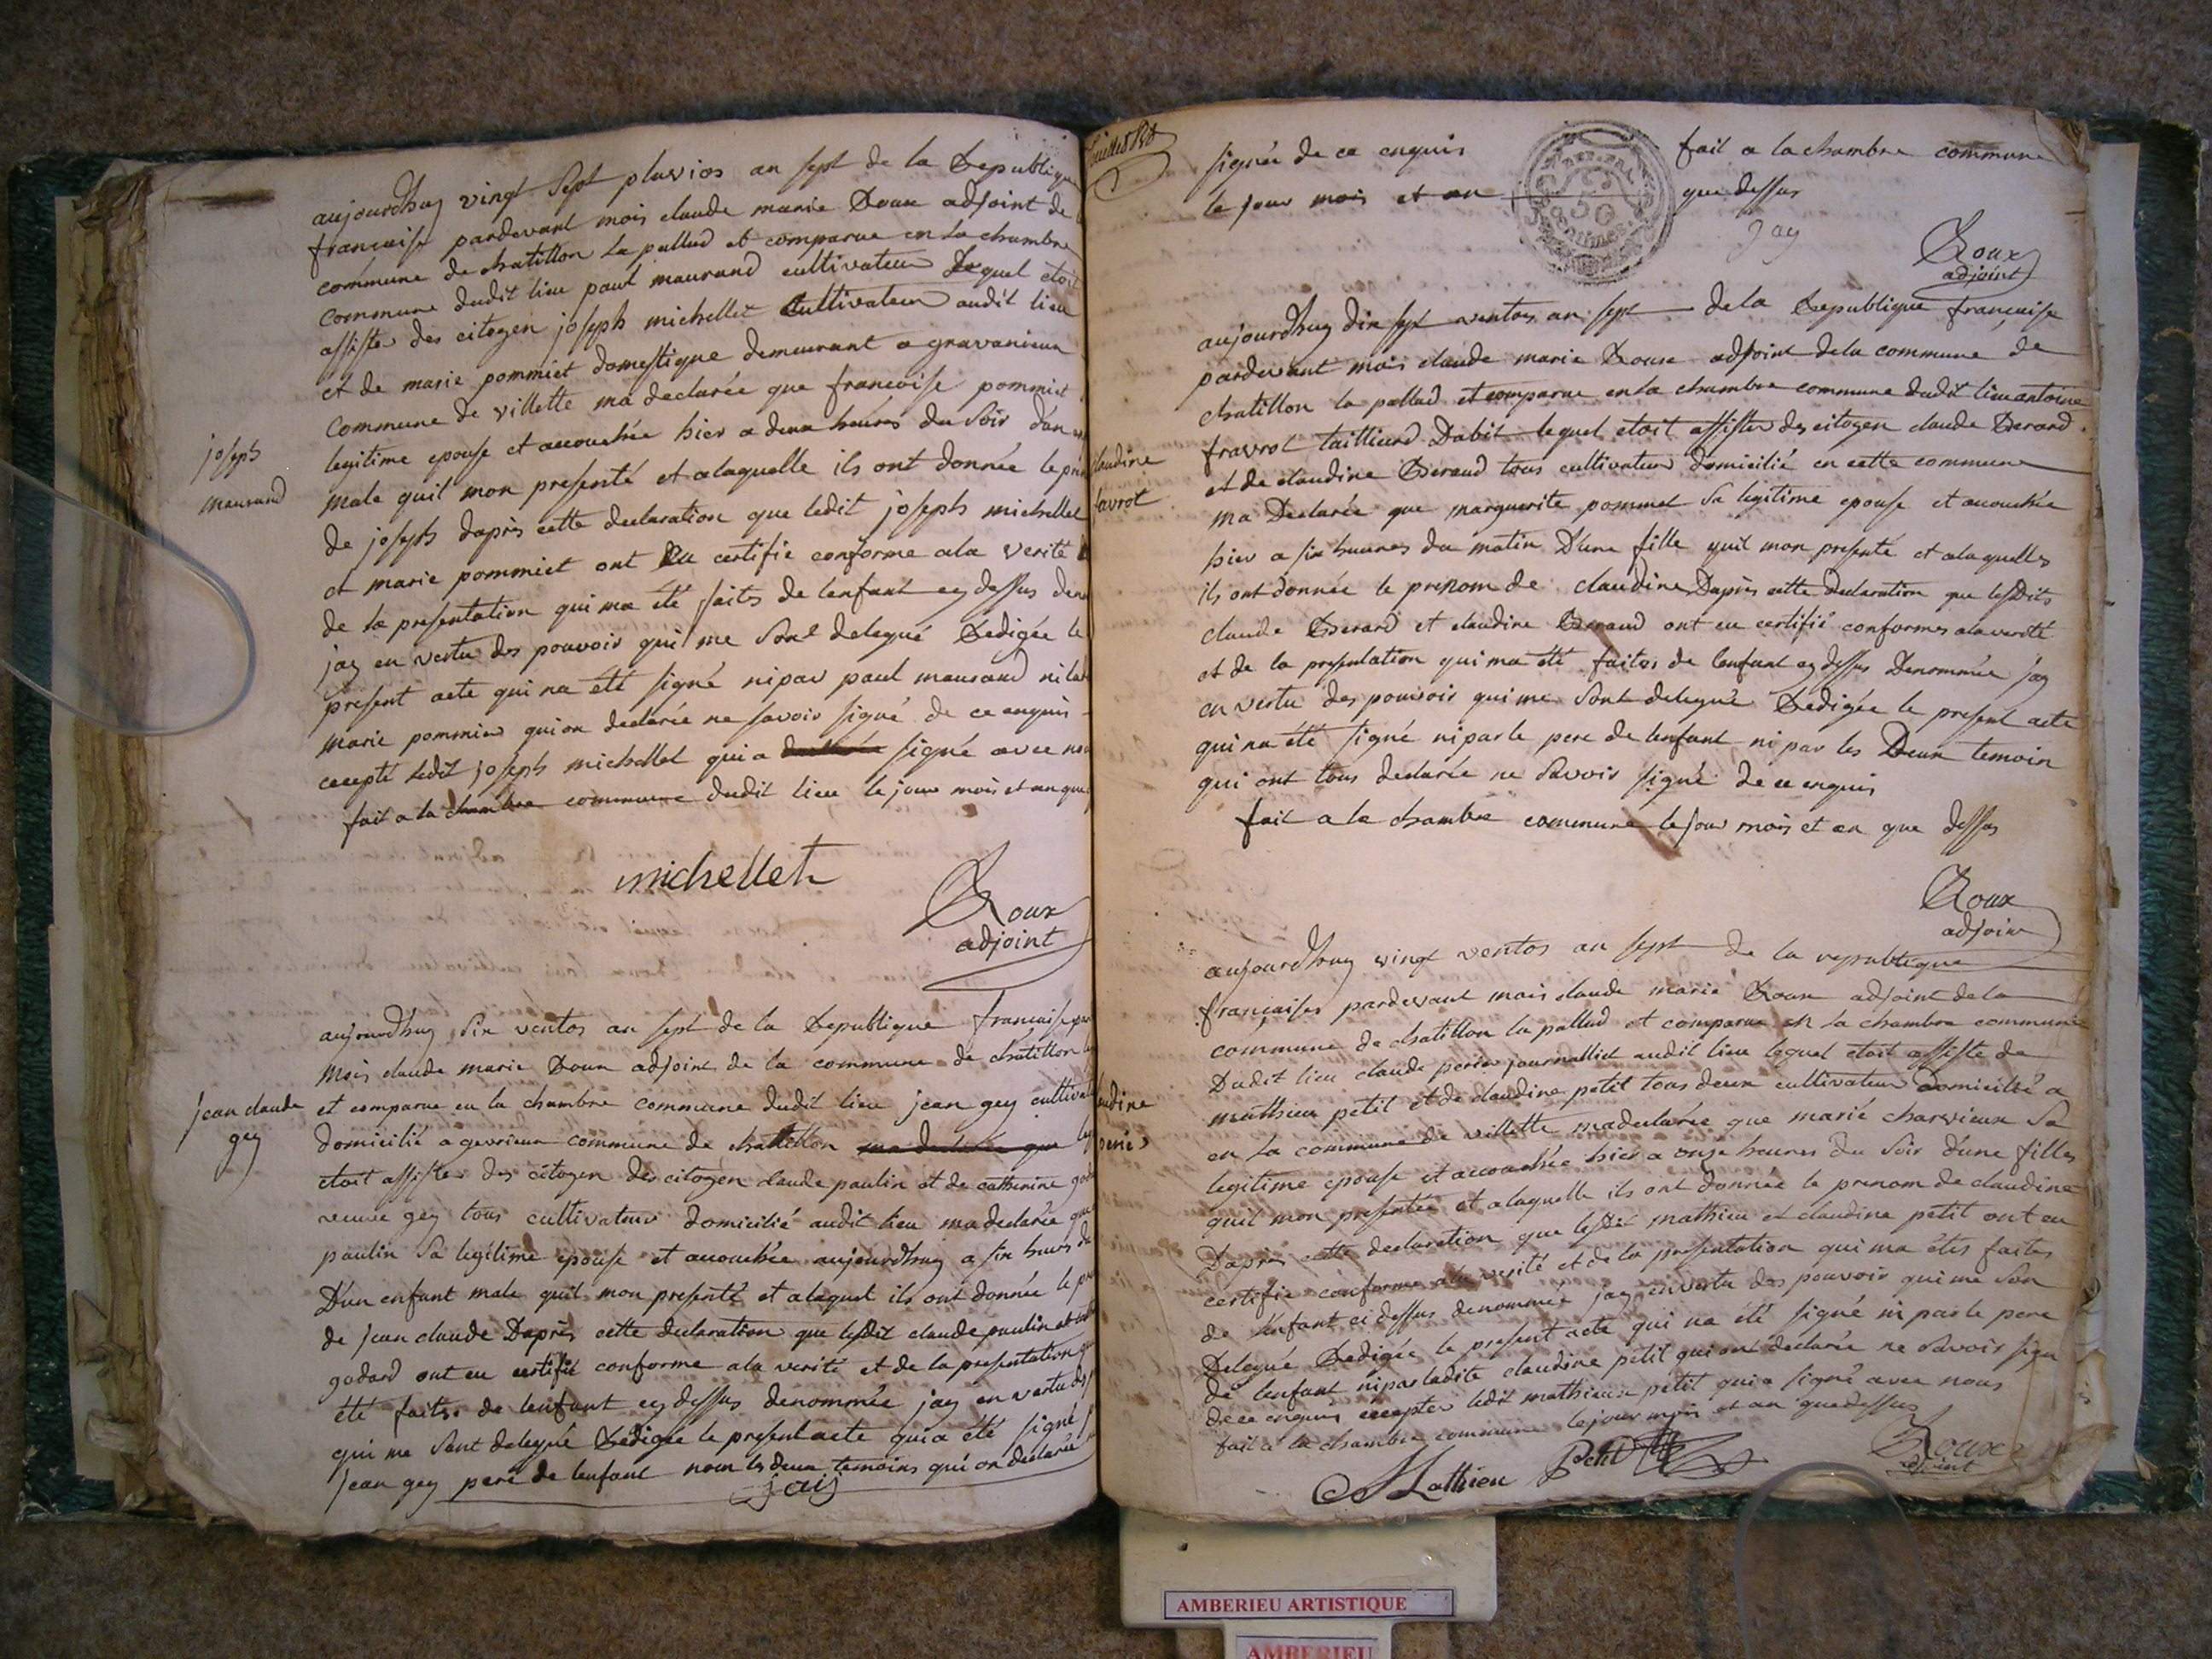 aujourdhuy vingt sept pluvios an sept de la Republique
francaise pardevant mois claude marie Roux adjoint de
commune de chatillon la pallud et comparue en la chambre
commune dudit lieu paul maurand cultivateur Lequel etoit
assister des citoyen joseph michellet Cultivateur audit lieu
et de marie pommiet domestique demeurant a gravanieux
commune de villette ma declarée que francoise pommiet
legitime epouse et acouchée hier a deux heures du soir d'un
male quil mon presenté et alaquelle ils ont donnée le
de joseph daprès cette declaration que ledit joseph michellet
et marie pommiet ont Eu certifie conforme ala verité
de la presentation qui ma été faites de lenfant cy dessus
jay en vertu des pouvoir qui me sont delegué Redigée le
present acte qui na été signé ni par paul maurand ni
marie pommier qui on declarée ne savoir signé de ce enquis
excepté ledit joseph michellet qui a signé avec
fait a la chambre commune dudit lieu le jour mois et an que
joseph
maurand
michellet
Roux
adjoint
aujourdhuy six ventos an sept de la Republique francaise
mois claude marie Roux adjoint de la commune de chatillon
et comparue en la chambre commune dudit lieu jean gey
domicilié a gevrieux commune de chatillon ma declarée que
etoit assister des citoyen des citoyen claude paulin et de catherine
veuve gey tous cultivateur domicilié audit lieu ma declarée que
paulin sa legitime epouse et acouchée aujourdhuy a six heures
D'un enfant male quil mon presenté et alaquel ils ont donnée le
de jean claude Daprès cette declaration que lesdit claude paulin
godard ont eu certifié conforme ala verité et de la presentation
été faites de lenfant cy dessus denommée jay en vertu des
qui me sont delegué Redigée le present acte qui a été signé
jean gey pere de lenfant non les deux temoins qui on declarée
jean claude
gey
jaij
signer de ce enquis fait a la chambre commune
le jour mois et an que dessus
REP. FRA.
50
centimes
Jay
Roux
adjoint
aujourdhuy dix sept ventos an sept de la Republique francaise
pardevant mois claude marie Roux adjoint dela commune de
chatillon la pallud et comparue en la chambre commune dudit lieu antoine
fravrot taillieurd Dabit lequel etoit assister des citoyen claude Berard
et de claudine Beraud tous cultivateur domicilié en cette commune
ma Declarée que marguerite pommet sa legitime epouse et acouchée
hier a six heures du matin D'une fille quil mon presenté et alaquelles
ils ont donnée le prenom de claudine Daprès cette declaration que lesdits
claude Berard et claudine Beraud ont eu certifié conformes ala verité
et de la presentation qui ma été faites de lenfant cy dessus Denommée jay
en vertu des pouvoir qui me sont delegué Redigée le present acte
qui na été signé ni par le pere de lenfant ni par les Deux temoin
qui ont tous declarée ne savoir signé de ce enquis
fait a la chambre commune le jour mois et an que dessus
claudine
favrot
Roux
adjoin
aujourdhuy vingt ventos an sept de la republique
françaises pardevant mois claude marie Roux adjoint de la
commune de chatillon la pallud et comparue en la chambre commune
Dudit lieu claude perier journalliet audit lieu lequel etoit assisté de
mathieu petit et de claudine petit tous deux cultivateur domicilié a
en la commune de villette ma declarée que marie charvieux sa
legitime epouse et acouchée hier a onze heures du soir d'une filles
quil mon presentée et alaquelle ils ont donnée le prenom de claudine
Daprès cette declaration que lesdit mathieu et claudine petit ont eu
certifie conforme ala verité et de la presentation qui ma étés faites
de l'enfant ci dessus denommée jay en vertu des pouvoir qui me son
Delegué Redigée le present acte qui na été signé ni par le pere
de lenfant ni par ladite claudine petit qui ont declarée ne savoir signé
de ce enquis excepter ledit mathieux petit qui a signé avec nous
fait a la chambre commune le jour mois et an que dessus
Mathieu Petit
Roux
adjoint
AMBERIEU ARTISTIQUE
AMBERIEU